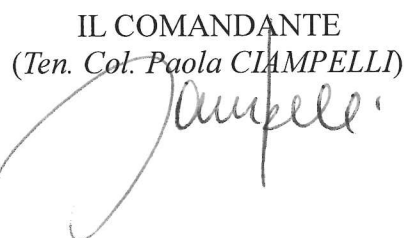 IL COMANDANTE
(Ten. Col. Paola CIAMPELLI)
Ciampelli